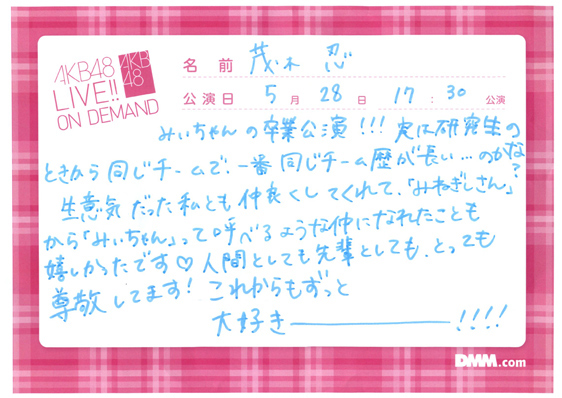 AKB48
LIVE!!
ON DEMAND
AKB
48
名前 茂木 忍
公演日 5月28日 17:30公演
みぃちゃんの卒業公演!!! 実は研究生の
ときから同じチームで、一番同じチーム歴が長い…のかな?
生意気だった私とも仲良くしてくれて、「みねぎしさん」
から「みぃちゃん」って呼べるような仲になれたことも
嬉しかったです♡人間としても先輩としても、とっても
尊敬してます! これからもずっと
大好き――――!!!!
DMM.com